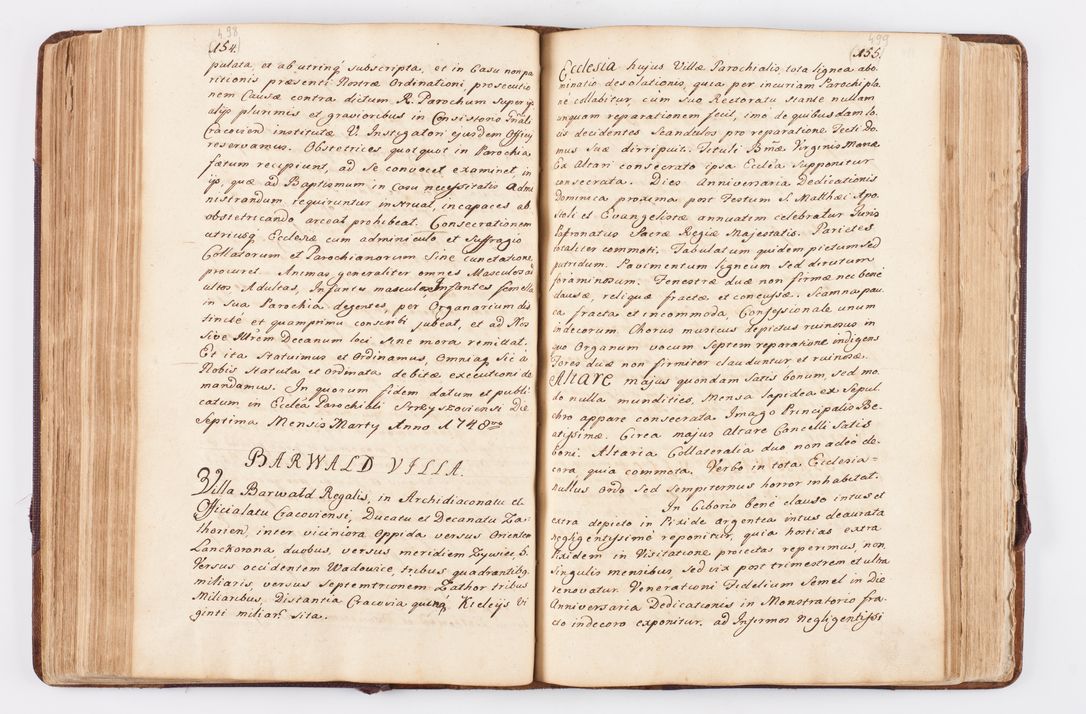 498
154.
putata et ab utrinq subscripta, et in Casu non pa
ritionis præsenti Nostræ Ordinationi, prosecutio
nem Causæ contra dictum R. Parochum super ijs
alijs plurimis et gravioribus in Consistorio Gnali
Cracovien institutæ V. Instigatori ejusdem Officij
reservamus. Obstetrices quotquot in Parochia
fætum recipiunt, ad se convocet examinet, in
ijs, quæ ad Baptismum in Casu necessitatis Admi
nistrandum requiruntur instruat, incapaces ab
obstetricando arceat prohibeat. Consecrationem
utriusq Ecclesiæ cum adminiculo et Suffragio
Collatorum et Parochianorum Sine cunctatione
procuret. Animas generaliter omnes Masculos a
ultos Adultas, Infantes masculos, Infantes femella
in sua Parochia degentes, per Organarium dis
tincte et quamprimum conscribi jubeat, et ad Nos
Sive Illrem Decanum loci sine mora remittat.
Et ita Statuimus et Ordinamus, Omniaq Sic a
Nobis Statuta et ordinata debitæ executioni de
mandamus. In quorum fidem datum et publi
catum in Ecclea Parochiali Stryszoviensi Die
Septima Mensis Martij Anno 1748vo
BARWALD VILLA.
Villa Barwald Regalis, in Archidiaconatu et
Officialatu Cracoviensi, Ducatu et Decanatu Za
thorien, inter viciniora Oppida versus Orientem
Lanckorona duobus, versus meridiem Zywiec, 5.
Versus occidentem Wadowice tribus quadrantibq
miliaris, versus Septemtrionem Zathor tribus
Miliaribus, Distantia Cracovia quinq, Kielcijs Vi
ginti miliar. Sita.
499
155.
Ecclesia hujus Villæ Parochialis, tota lignea abo
minatio desolationis, quia per incuriam Parochi pla
ne collabitur, cum suo Rectoratu stante nullam
unquam reparationem fecit, imo de quibusdam lo
cis decidentes Scandulos pro reparatione Tecti Do
mus suæ dirripuit. Tituli Bmæ Virginis Mariæ
Ex Altari consecrato ipsa Ecclea Supponitur
consecrata. Dies Anniversaria Dedicationis
Dominica proxima post Festum S. Matthæi Apo
stoli et Evangelistæ annuatim celebratur Juris
Patronatus Sacræ Regiæ Majestatis. Parietes
totaliter commoti. Tabulatum quidem pictum sed
putridum. Pavimentum ligneum sed dirutum
foraminosum. Fenestræ duæ non firmæ nec bene
clausæ, reliquæ fractæ et concussæ. Scamna pau
ca fracta et incommoda, Confessionale unum
indecorum. Chorus musicus depictus ruinosus in
quo Organum vocum Septem reparatione indigens
Fores duæ non firmiter clauduntur et ruinosæ.
Altare majus quondam satis bonum, sed mo
do nulla mundities, Mensa lapidea ex Sepul
chro appare consecrata. Imago Principalis Be
atissimæ. Circa majus Altare Cancelli Satis
boni. Altaria Collateralia duo non adeo de
cora quia commota. Verbo in tota Ecclesia
nullus ordo sed Sempiternus horror inhabitat.
In Ciborio bene clauso intus et
extra depicto in Pixide argentea intus deaurata
negligentissime reponitur, quia hostias extra
Pixidem in Visitatione projectas reperimus, non
singulis mensibus, sed vix post trimestrem et ultra
renovatur. Venerationi Fidelium Semel in Die
Anniversaria Dedicationis in Monstratorio fra
cto indecoro exponitur. ad Infirmos Negligentissi